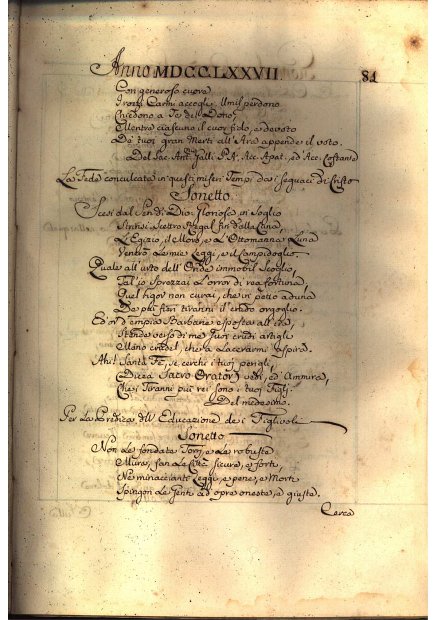 Anno MDCCLXXVII.
81
Con generoso cuore
I rozzi Carmi accogli. Umil perdono
Chiedono a Te del Dono;
Mentre ciascuno il cuor fido, e devoto
De' tuoi gran Merti all'Ara appende il voto.
Del Sac. Ant. Galli P. A. Acc. Apat. ed Acc. Costante
La Fede conculcata in questi miseri Tempi dai seguaci di Cristo
Sonetto.
Scesi dal Sen di Dio: Gloriosa in Soglio
Strinsi Scettro Regal fin dalla Cuna,
L'Egizio, il Moro, e L'Ottomanna Luna
Venerò Le mie Leggi, e il Campidoglio.
Quale all'urto dell'Onde immobil Scoglio,
Tal io Sprezzai L'orror di rea fortuna,
Quel rigor non curai, che in petto aduna
De' più fieri tiranni il crudo orgoglio.
Ed or d'empia Barbarie esposta all'ira,
Stende verso di me fuori crudi artigli
Mano crudel, che a Lacerarmi aspira.
Ahi! Santa Fè, se cerchi i tuoi perigli,
Dice il Sacro Orator, vedi, ed Ammira,
Che i Tiranni più rei sono i tuoi Figlj.
Del medesimo.
Per La Predica dell'Educazione dei Figlivoli
Sonetto
Non Le fondate Torri, e Le robuste
Mura, fan Le Città sicure, e forti,
Ne minaccianti Leggi, e pene, e Morti
Spingon Le Genti ad opre oneste, e giuste.
Cerca